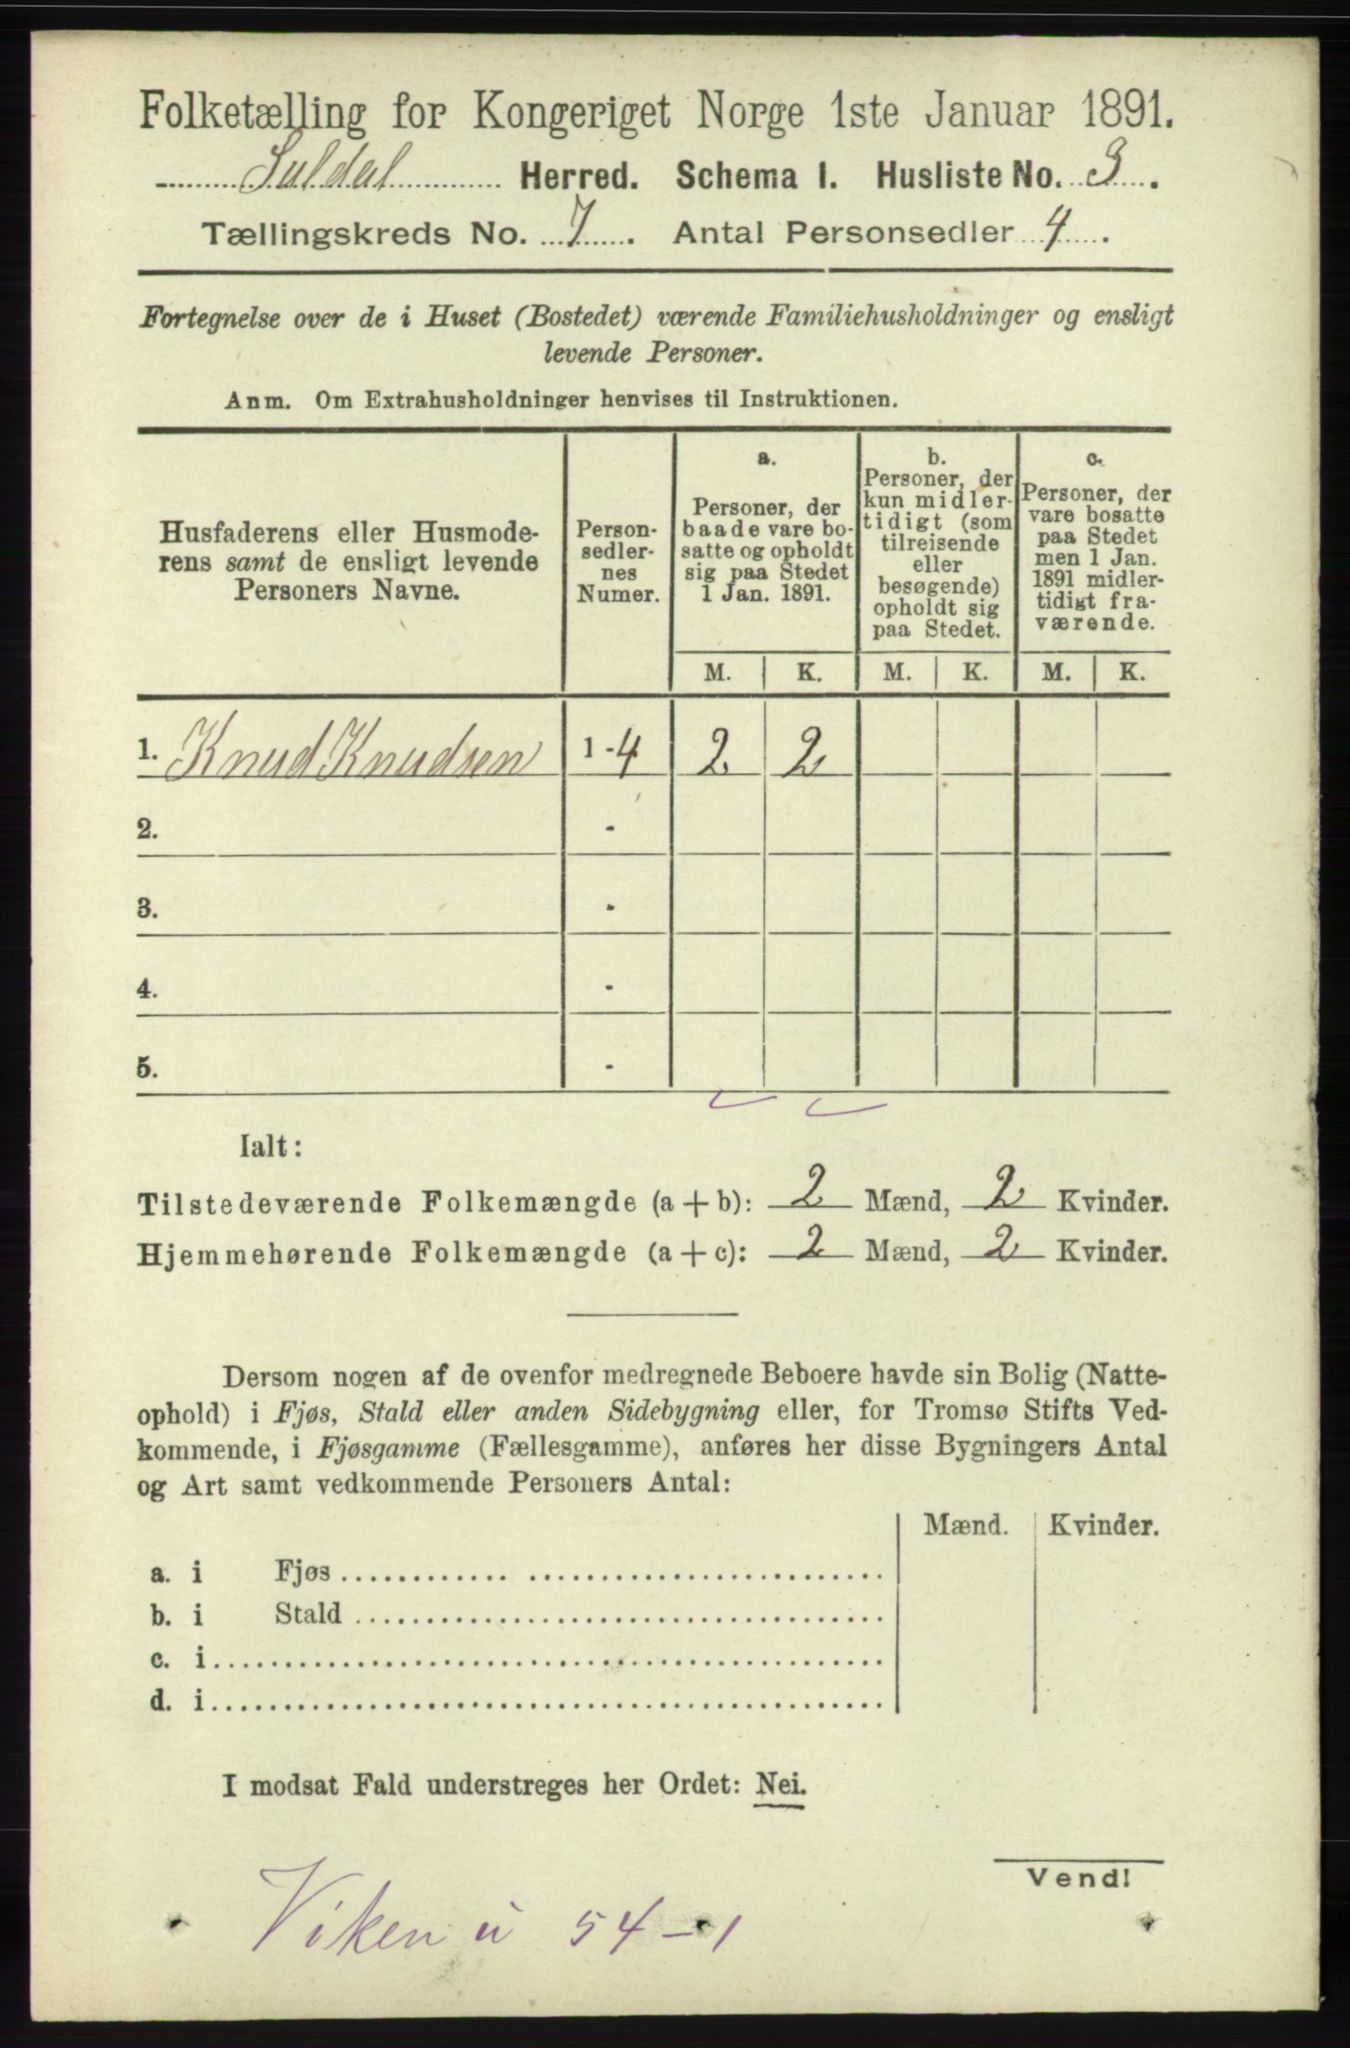 Folketælling for Kongeriget Norge 1ste Januar 1891.
Suldal Herred. Schema I. Husliste No. 3.
Tællingskreds No. 7. Antal Personsedler 4.
Fortegnelse over de i Huset (Bostedet) værende Familiehusholdninger og ensligt
levende Personer.
Anm. Om Extrahusholdninger henvises til Instruktionen.
Husfaderens eller Husmode-
rens samt de ensligt levende
Personers Navne.
Person-
sedler-
nes
Numer.
a.
Personer, der
baade vare bo-
satte og opholdt
sig paa Stedet
1 Jan. 1891.
b.
Personer, der
kun midler-
tidigt (som
tilreisende
eller
besøgende)
opholdt sig
paa Stedet.
c.
Personer, der
vare bosatte
paa Stedet
men 1 Jan.
1891 midler-
tidigt fra-
værende.
M. K. M. K. M. K.
1. Knud Knudsen 1 - 4 2 2
2. -
3. -
4. -
5. -
Ialt:
Tilstedeværende Folkemængde (a + b): 2 Mænd, 2 Kvinder.
Hjemmehørende Folkemængde (a + c): 2 Mænd, 2 Kvinder.
Dersom nogen af de ovenfor medregnede Beboere havde sin Bolig (Natte-
ophold) i Fjøs, Stald eller anden Sidebygning eller, for Tromsø Stifts Ved-
kommende, i Fjøsgamme (Fællesgamme), anføres her disse Bygningers Antal
og Art samt vedkommende Personers Antal:
Mænd. Kvinder.
a. i Fjøs
b. i Stald
c. i
d. i
I modsat Fald understreges her Ordet: Nei.
Vend!
Viken u 54-1